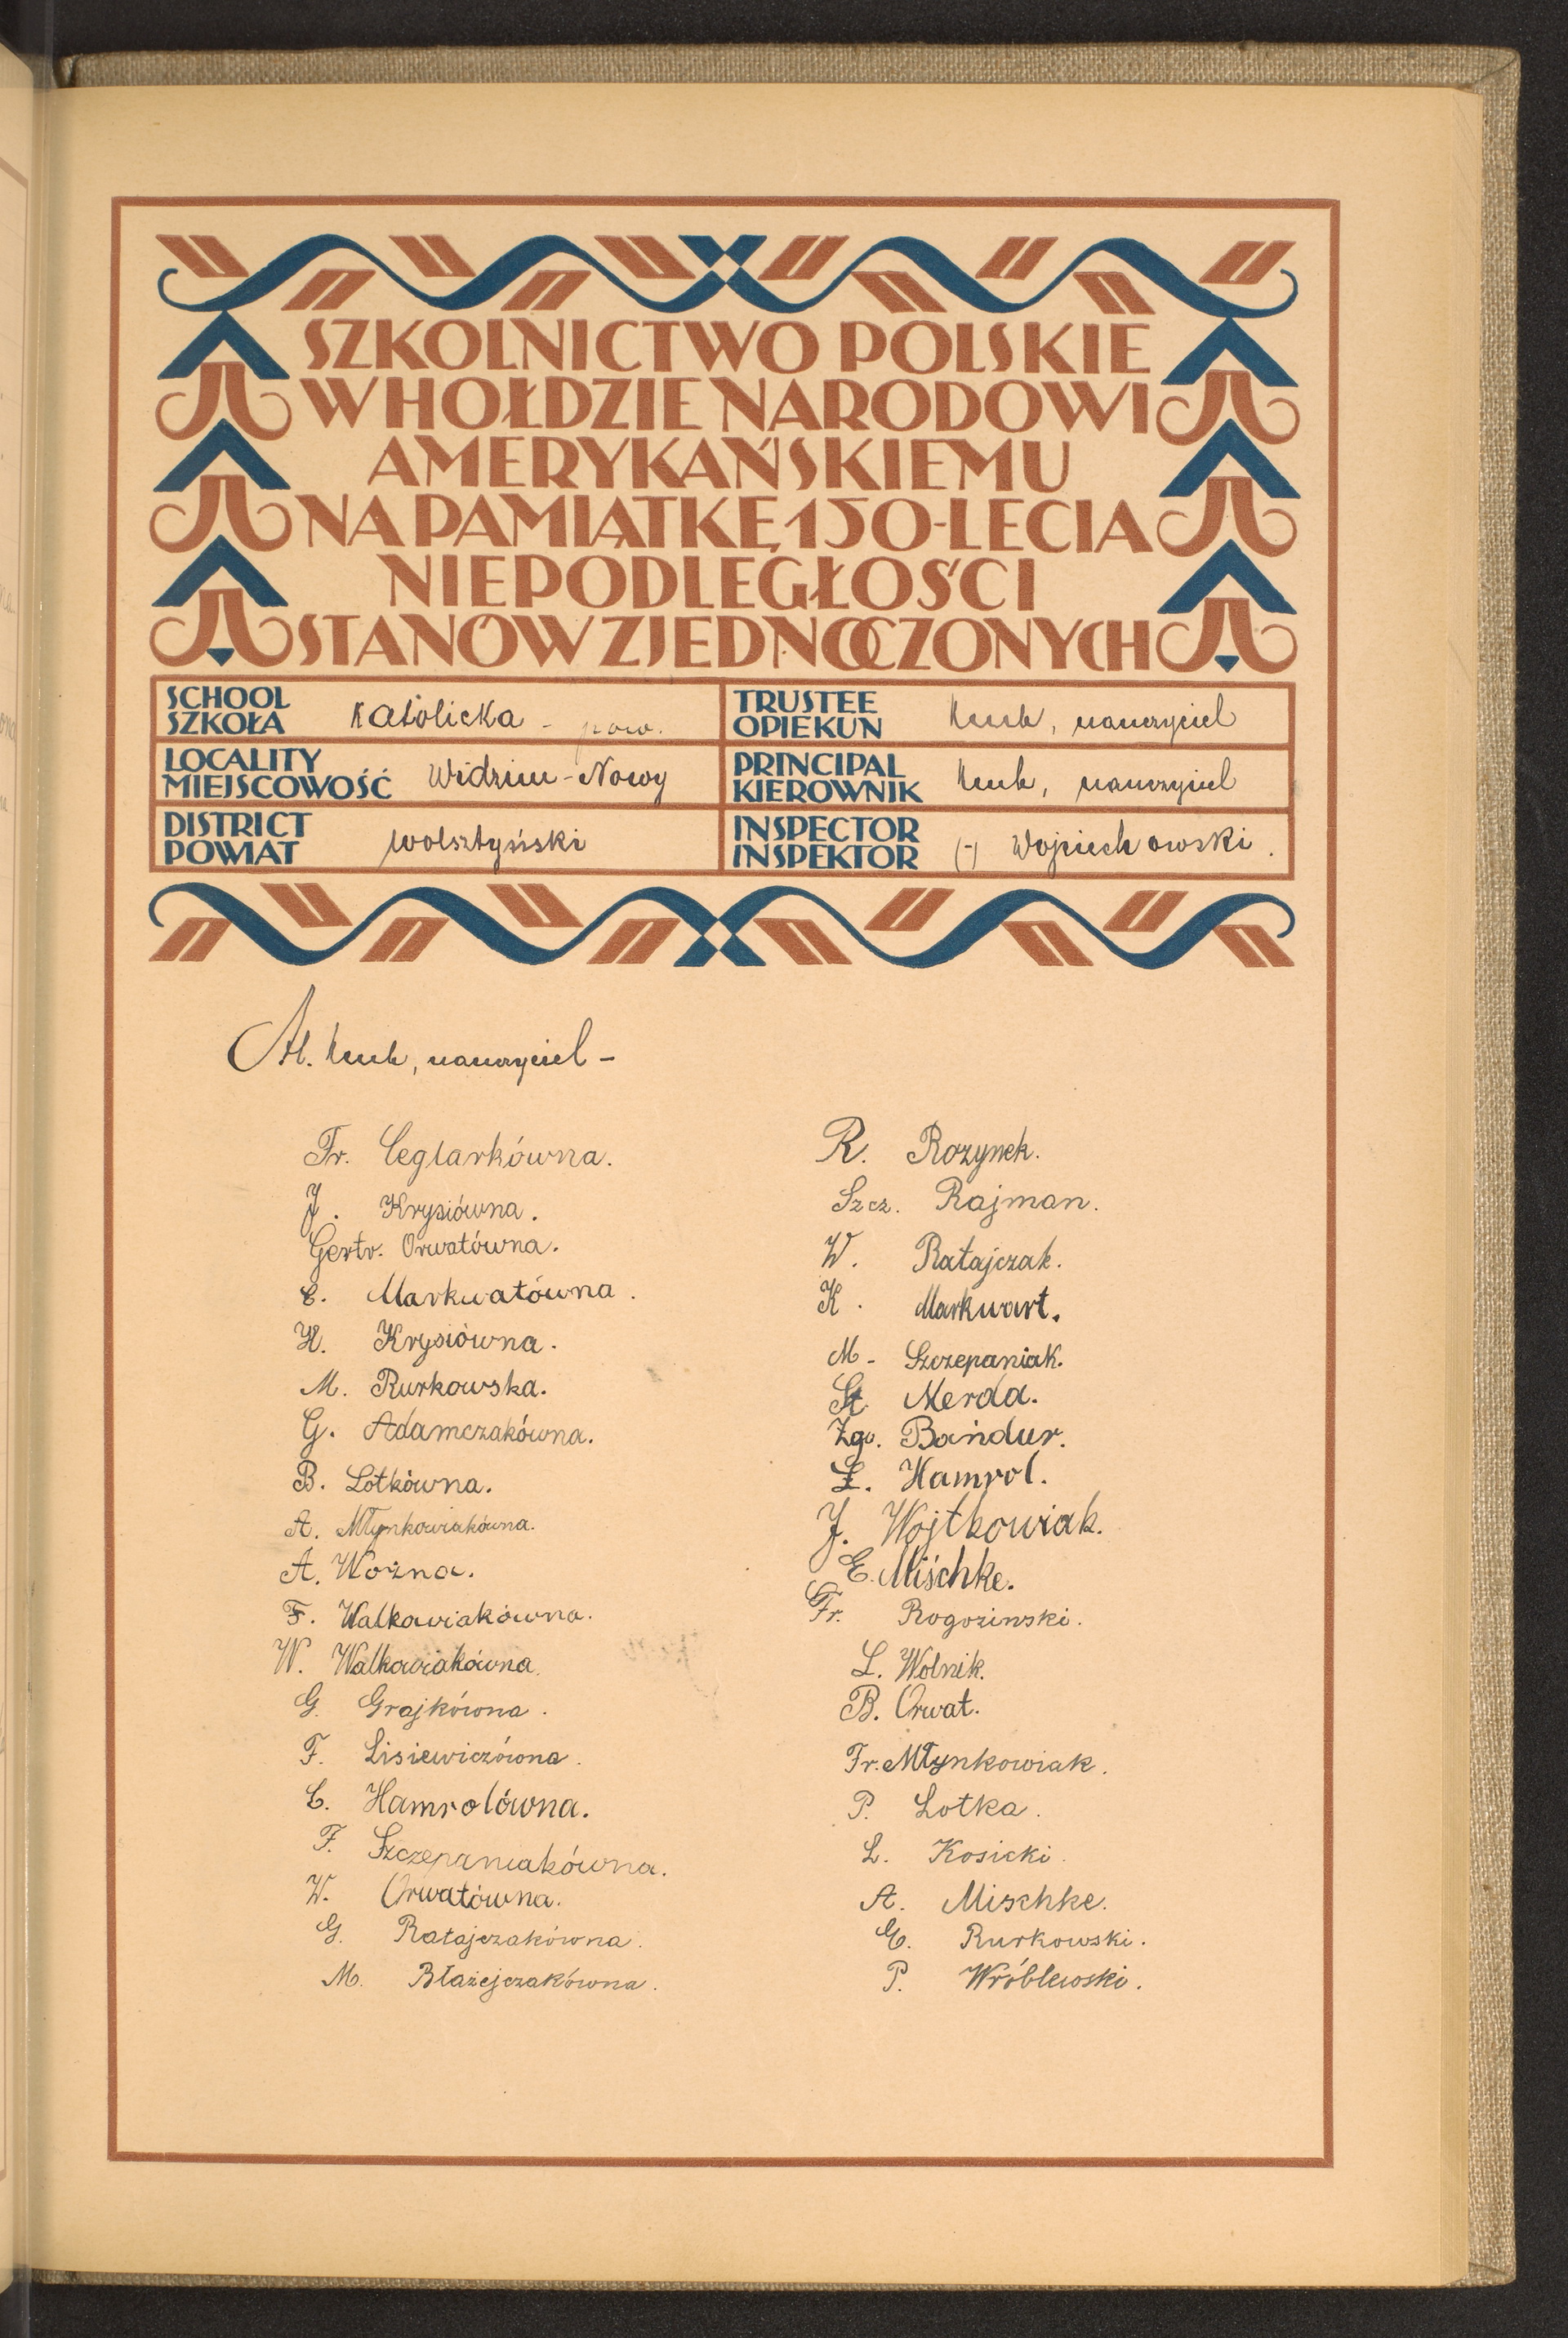 SZKOLNICTWO POLSKIE
W HOŁDZIE NARODOWI
AMERYKAŃSKIEMU
NA PAMIĄTKĘ 150-LECIA
NIEPODLEGŁOŚCI
STANÓW ZJEDNOCZONYCH
SCHOOL
SZKOŁA Katolicka - pow.
TRUSTEE
OPIEKUN nauczyciel
LOCALITY
MIEJSCOWOŚĆ Widzim-Nowy
PRINCIPAL
KIEROWNIK nauczyciel
DISTRICT
POWIAT wolsztyński
INSPECTOR
INSPEKTOR (-) Wojciechowski.
nauczyciel -
Fr. Ceglarkówna.
J. Krysiówna.
Gertr. Orwatówna.
C. Markwatówna.
H. Krysiówna.
M. Rurkowska.
G. Adamczakówna.
B. Lotkówna.
A. Młynkowiakówna.
A. Woźna.
F. Walkowiakówna.
W. Walkowiakówna.
G. Grajkówna.
F. Lisiewiczówna.
C. Hamrolówna.
F. Szczepaniakówna.
W. Orwatówna.
G. Ratajczakówna.
M. Błażejczakówna.
R. Rozynek.
Szcz. Rajman.
W. Ratajczak.
K. Markwart.
M. Szczepaniak.
St. Merda.
Zgo. Bańdur.
Ł. Hamrol.
J. Wojtkowiak.
E. Miśchke.
Fr. Rogozinski.
L. Wolnik.
B. Orwat.
Fr. Młynkowiak.
P. Lotka.
L. Kosicki.
A. Mischke.
E. Rurkowski.
P. Wróblewski.